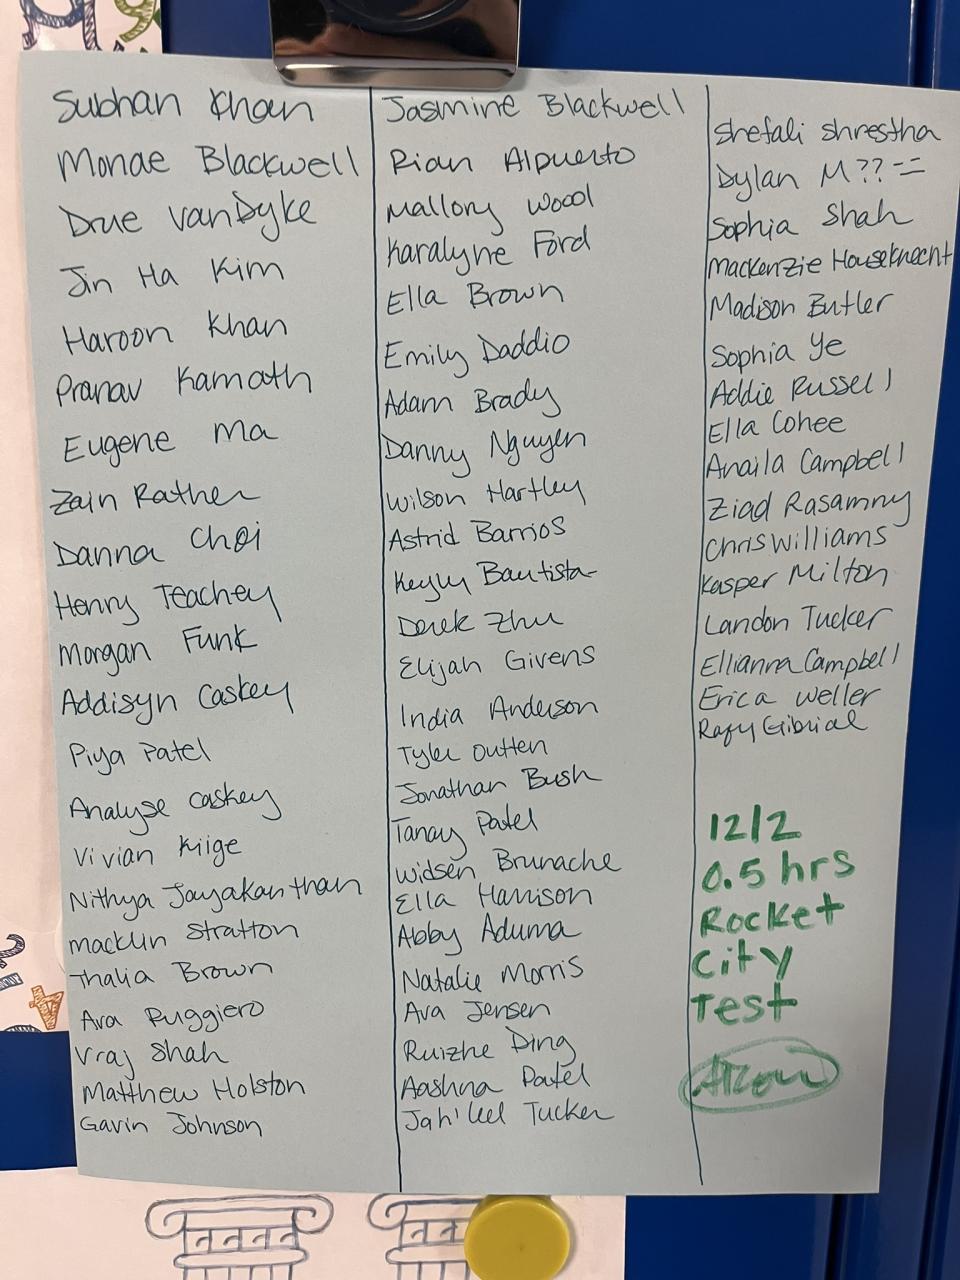 Subhan Khan
Monae Blackwell
Drue VanDyke
Jin Ha Kim
Haroon Khan
Pranav Kamath
Eugene Ma
Zain Rather
Danna Choi
Henry Teachey
Morgan Funk
Addisyn Caskey
Piya Patel
Analyse Caskey
Vivian Kiige
Nithya Jayakanthan
Macklin Stratton
Thalia Brown
Ava Ruggiero
Vraj Shah
Matthew Holston
Gavin Johnson
Jasmine Blackwell
Rian Alpuerto
Mallory Wood
Karalyne Ford
Ella Brown
Emily Daddio
Adam Brady
Danny Nguyen
Wilson Hartley
Astrid Barrios
Keyly Bautista
Derek Zhu
Elijah Givens
India Anderson
Tyler Outten
Jonathan Bush
Tanay Patel
Widsen Brunache
Ella Harrison
Abby Aduma
Natalie Morris
Ava Jensen
Ruizhe Ding
Aashna Patel
Jah'liel Tucker
Shefali Shrestha
Dylan M??==
Sophia Shah
Mackenzie Houseknecht
Madison Butler
Sophia Ye
Addie Russell
Ella Cohee
Anaila Campbell
Ziad Rasamny
Chris Williams
Kasper Milton
Landon Tucker
Ellianna Campbell
Erica Weller
Rafy Gibrial
12/2
0.5 hrs
Rocket
City
Test